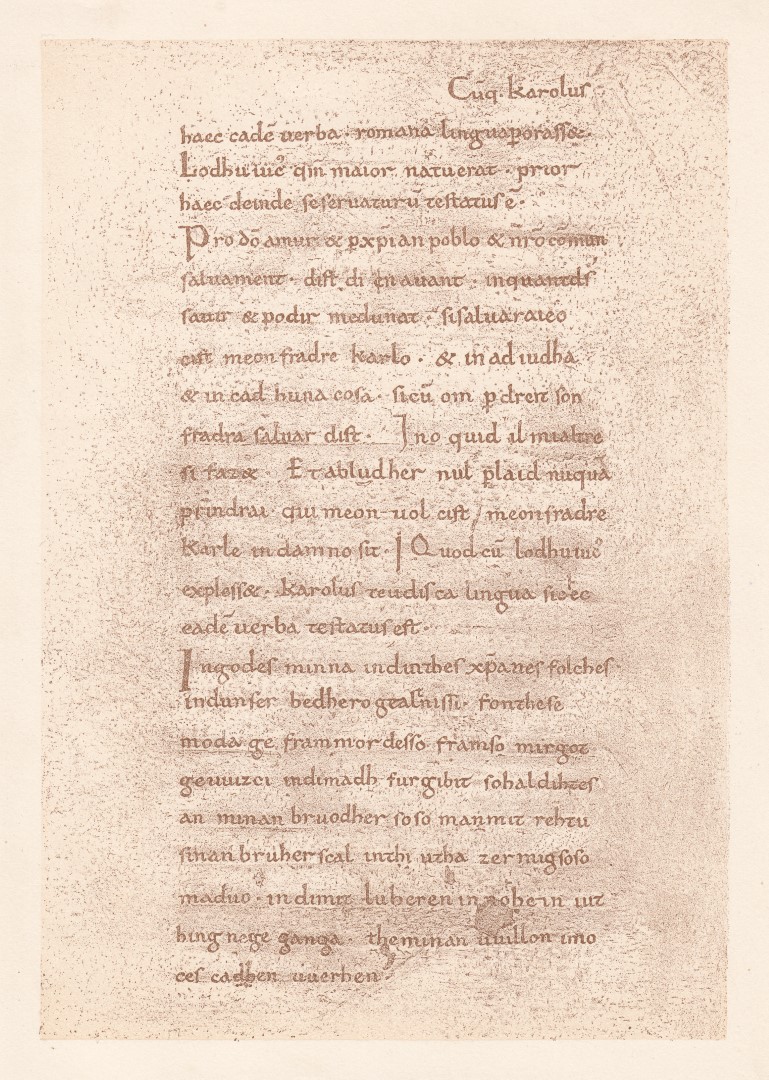 Cūq. karolus
haec eadē uerba · romana linguaporass&.
Lodhuuicꝰ qm̄ maior natuerat · prior
haec deinde seseruaturū testatus ē·
Pro dō amur & pxp̄ian poblo & nr̄o cōmun
saluament · dist di en auant · inquantdſ
sauir & podir medunat · sisaluaraieo
cist meon fradre karlo · & in ad iudha
& in cad huna cosa · sicū om p dreit son
fradra saluar dist · Ino quid il mialtre
si faz& · Et abludher nul plaid nūquā
prindrai · qui meon uol cist meonfradre
Karle in damno sit · Quod cū lodhuuicꝰ
expless& · Karolus teudisca lingua sic hec
eadē uerba testatus est ·
Ingodes minna indinthes xp̄anes folches
indunser bedhero gealtnissi · fonthese
moda ge frammordesso framso mirgot
geuuizci indimadh furgibit sohaldihtes
an minan bruodher soso manmit rehtu
sinan bruher scal inthi utha zermigsoso
maduo · indimit luheren innohein iut
hing nege ganga · theminan uuillon imo
ces cadhen uuerhen